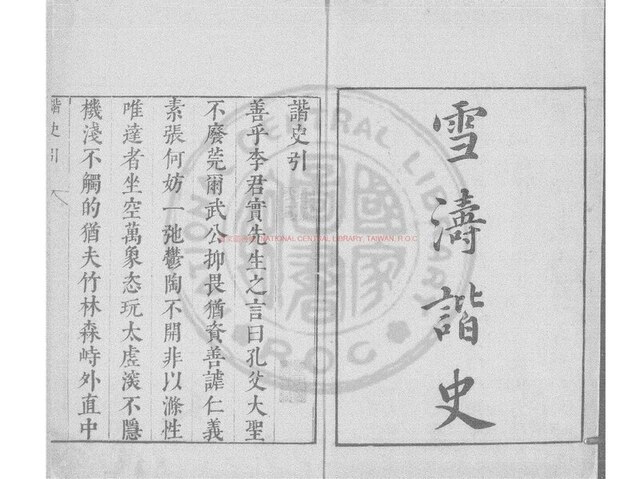 雪濤諧史
諧史引
善乎李君實先生之言曰孔父大聖
不廢莞爾武公抑畏猶資善謔仁義
素張何妨一弛鬱陶不開非以滌性
唯達者坐空萬象恣玩太虛深不隱
機淺不觸的猶夫竹林森峙外直中
諧史引
NATIONAL CENTRAL LIBRARY, TAIWAN, R.O.C